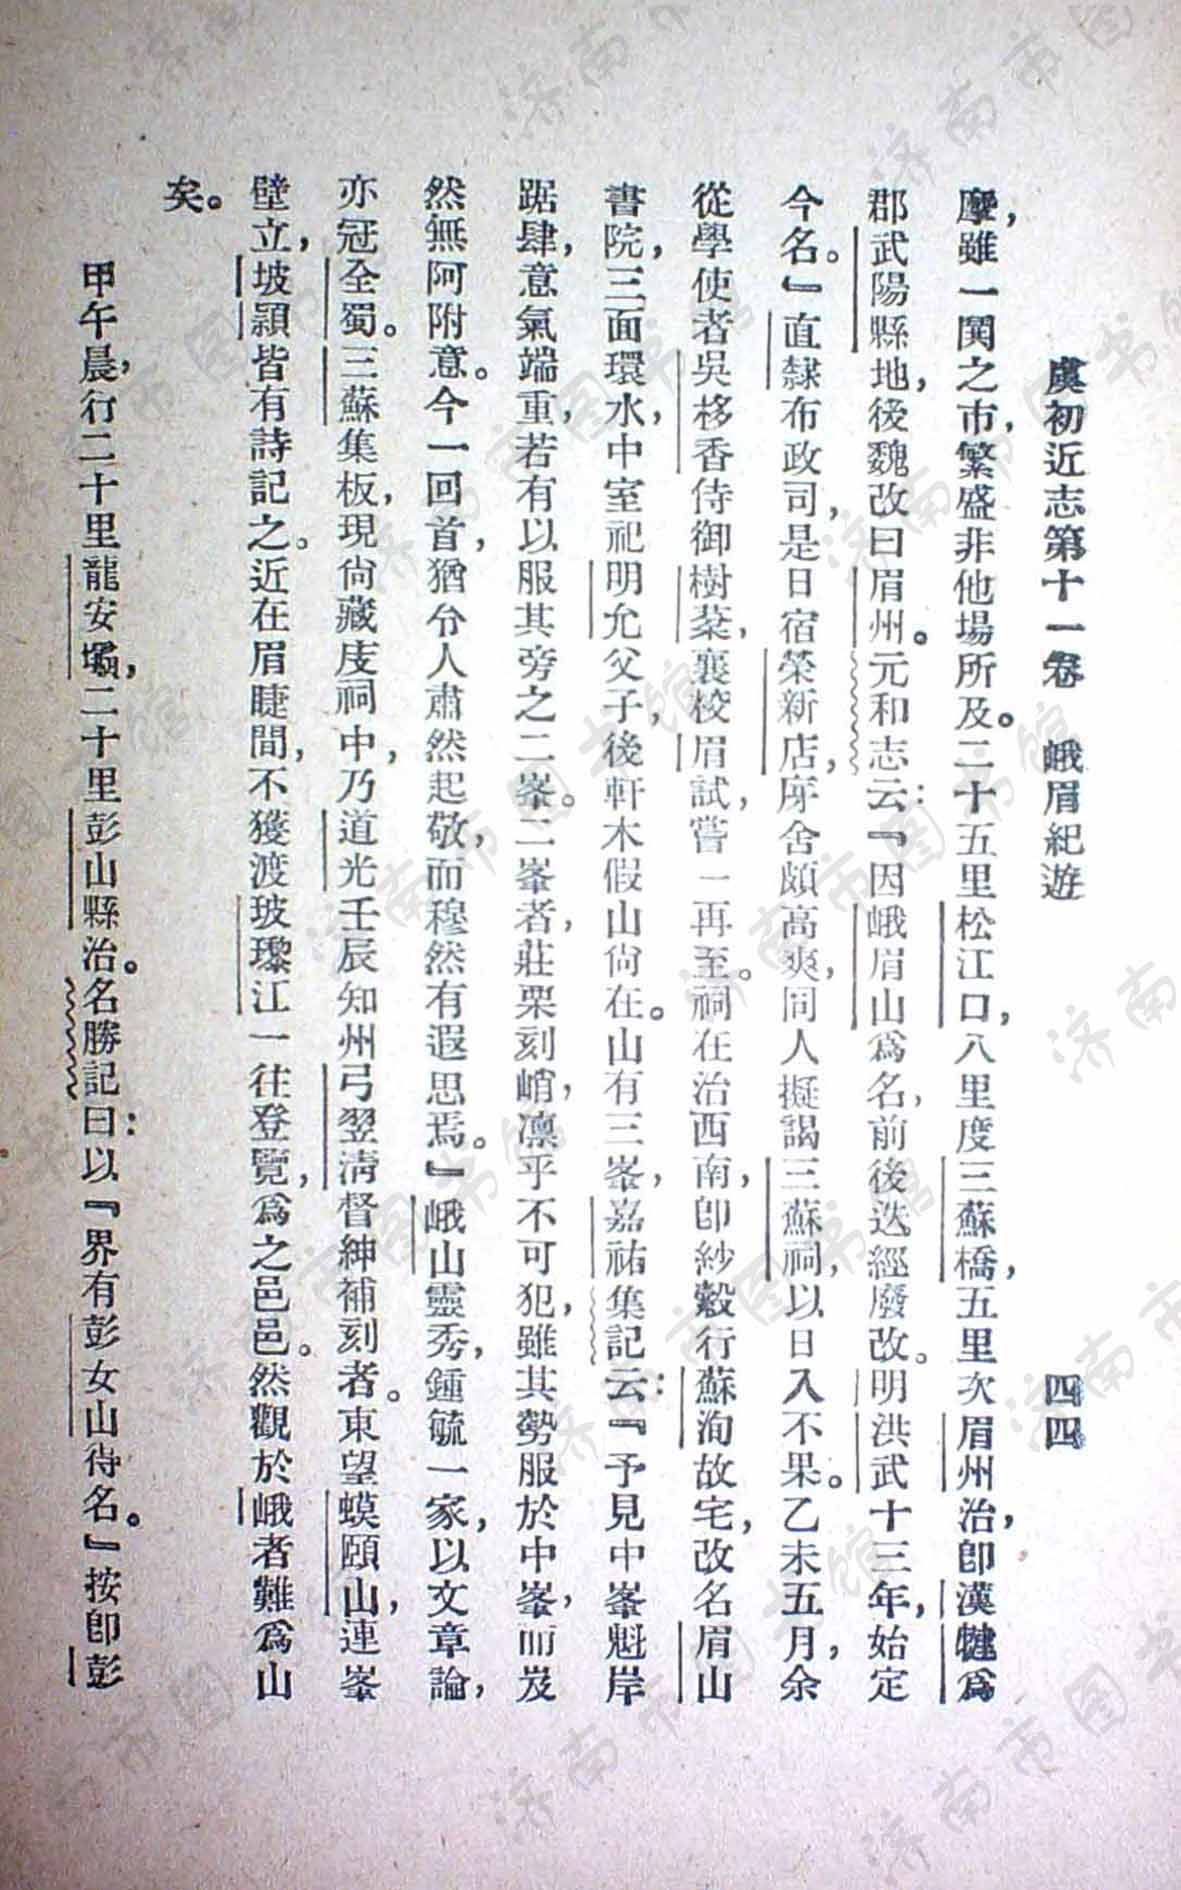 虞初近志第十一卷　峨眉紀遊　四四
摩，雖一闤之市，繁盛非他場所及。二十五里松江口，八里度三蘇橋，五里次眉州治，卽漢犍爲
郡武陽縣地，後魏改曰眉州。元和志云：『因峨眉山爲名，前後迭經廢改。明洪武十三年，始定
今名。』直隸布政司，是日宿榮新店，房舍頗高爽，同人擬謁三蘇祠，以日入不果。乙未五月，余
從學使者吳移香侍御樹棻，襄校眉試，嘗一再至。祠在治西南，卽紗縠行蘇洵故宅，改名眉山
書院，三面環水，中室祀明允父子，後軒木假山尙在。山有三峯，嘉祐集記云：『予見中峯魁岸
踞肆，意氣端重，若有以服其旁之二峯。二峯者，莊栗刻峭，凛乎不可犯，雖其勢服於中峯，而岌
然無阿附意。今一回首，猶令人肅然起敬，而穆然有遐思焉。』峨山靈秀，鍾毓一家，以文章論，
亦冠全蜀。三蘇集板，現尙藏庋祠中，乃道光壬辰知州弓翌淸督紳補刻者。東望蟆頤山，連峯
壁立，坡潁皆有詩記之。近在眉睫間，不獲渡玻瓈江一往登覽，爲之邑邑。然觀於峨者難爲山
矣。
甲午晨，行二十里龍安壩，二十里彭山縣治。名勝記曰：以『界有彭女山待名。』按卽彭